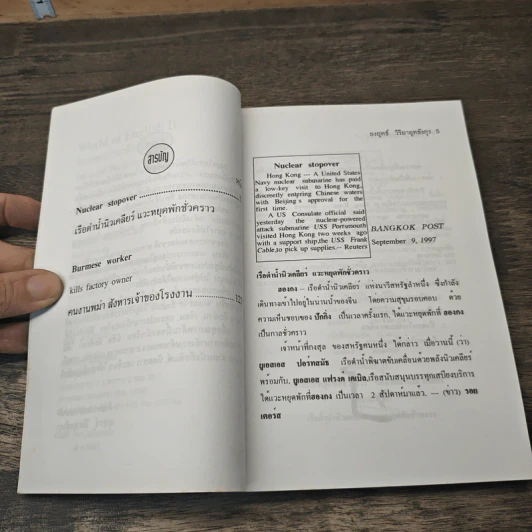 สารบัญ
Nuclear stopover
เรือดำน้ำนิวเคลียร์ แวะหยุดพักชั่วคราว
Burmese worker
kills factory owner
คนงานพม่า สังหารเจ้าของโรงงาน
5
Nuclear stopover
Hong Kong — A United States
Navy nuclear submarine has paid
a low-key visit to Hong Kong,
discreetly entering Chinese waters
with Beijing's approval for the
first time.
A US Consulate official said
yesterday the nuclear-powered
attack submarine USS Portsmouth
visited Hong Kong two weeks ago
with a support ship,the USS Frank
Cable,to pick up supplies.-- Reuters
BANGKOK POST
September 9, 1997
เรือดำน้ำนิวเคลียร์ แวะหยุดพักชั่วคราว
ฮ่องกง – เรือดำน้ำนิวเคลียร์ แห่งนาวีสหรัฐลำหนึ่ง ซึ่งกำลัง
เดินทางเข้าไปอยู่ในน่านน้ำของจีน โดยความสุขุมรอบคอบ ด้วย
ความเห็นชอบของ ปักกิ่ง เป็นเวลาครั้งแรก, ได้แวะหยุดพักที่ ฮ่องกง
เป็นกาลชั่วคราว
เจ้าหน้าที่กงสุล ของสหรัฐคนหนึ่ง ได้กล่าว เมื่อวานนี้ (ว่า)
ยูเอสเอส ปอร์ทสมัธ เรือดำน้ำพิฆาตขับเคลื่อนด้วยพลังนิวเคลียร์
พร้อมกับ, ยูเอสเอส แฟรงค์ เคเบิล,เรือสนับสนุนบรรทุกเสบียงบริการ
ได้แวะหยุดพักที่ฮ่องกง เป็นเวลา 2 สัปดาห์มาแล้ว. — (ข่าว) รอย
เตอร์ส